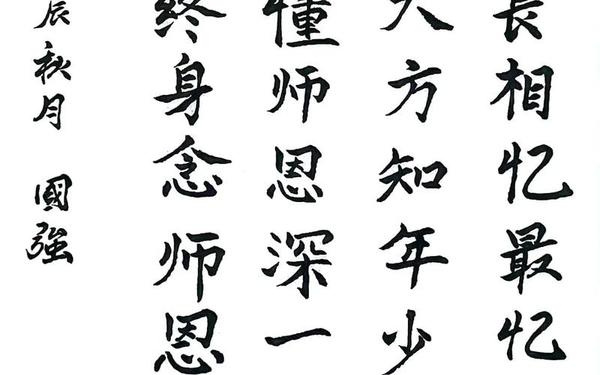 長相忆最忆
大方知年少
懂师恩深一
終身念师恩
辰秋月 國強